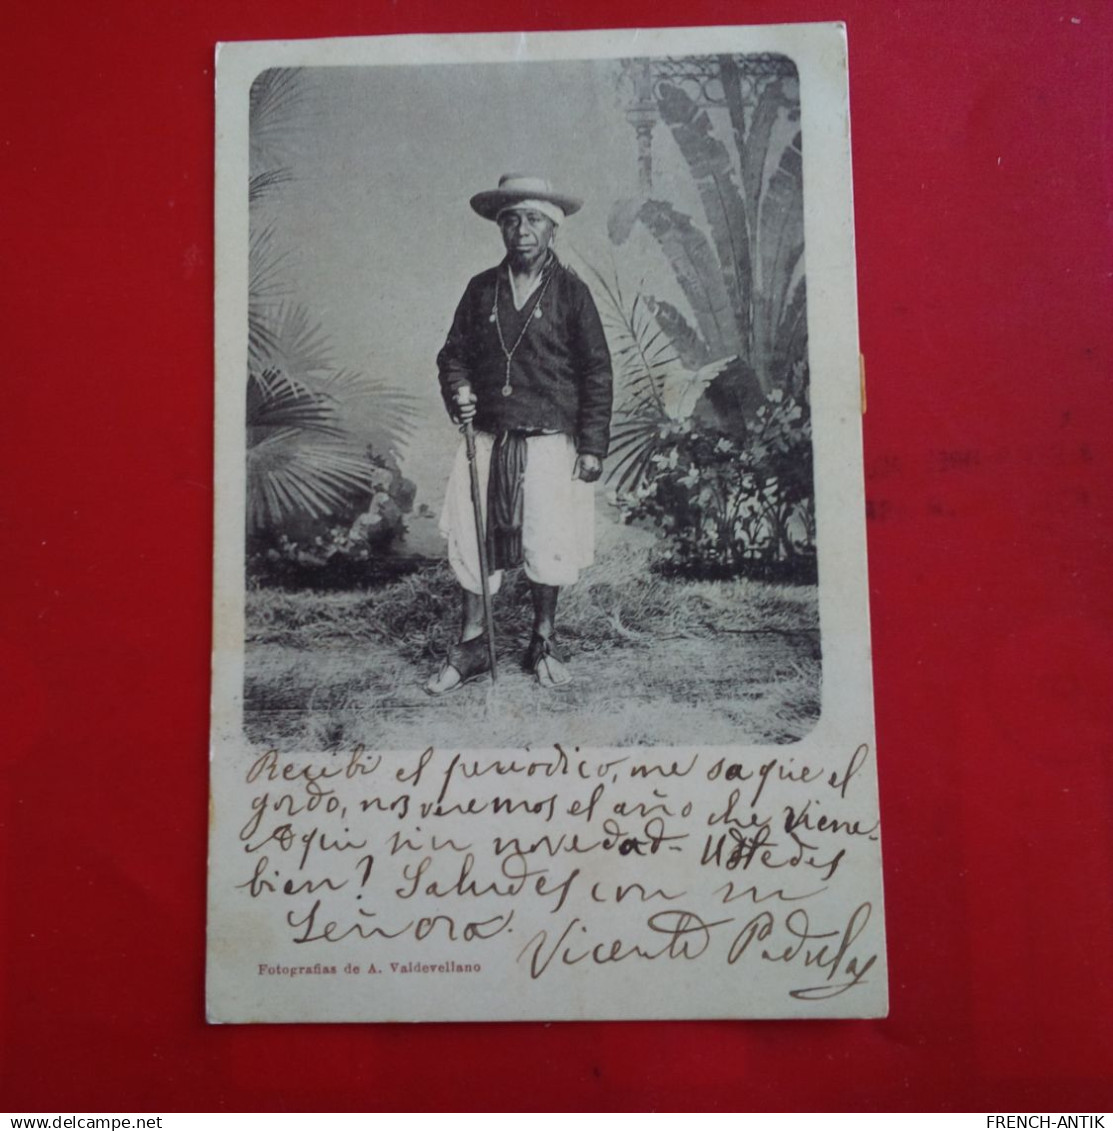 Recibi el periodico, me saque el
gordo, nos veremos el año che viene.
Aqui sin novedad - Ustedes
bien? Saludes con su
Señora.
Vicente Padulas
Fotografias de A. Valdevellano
FRENCH-ANTIK